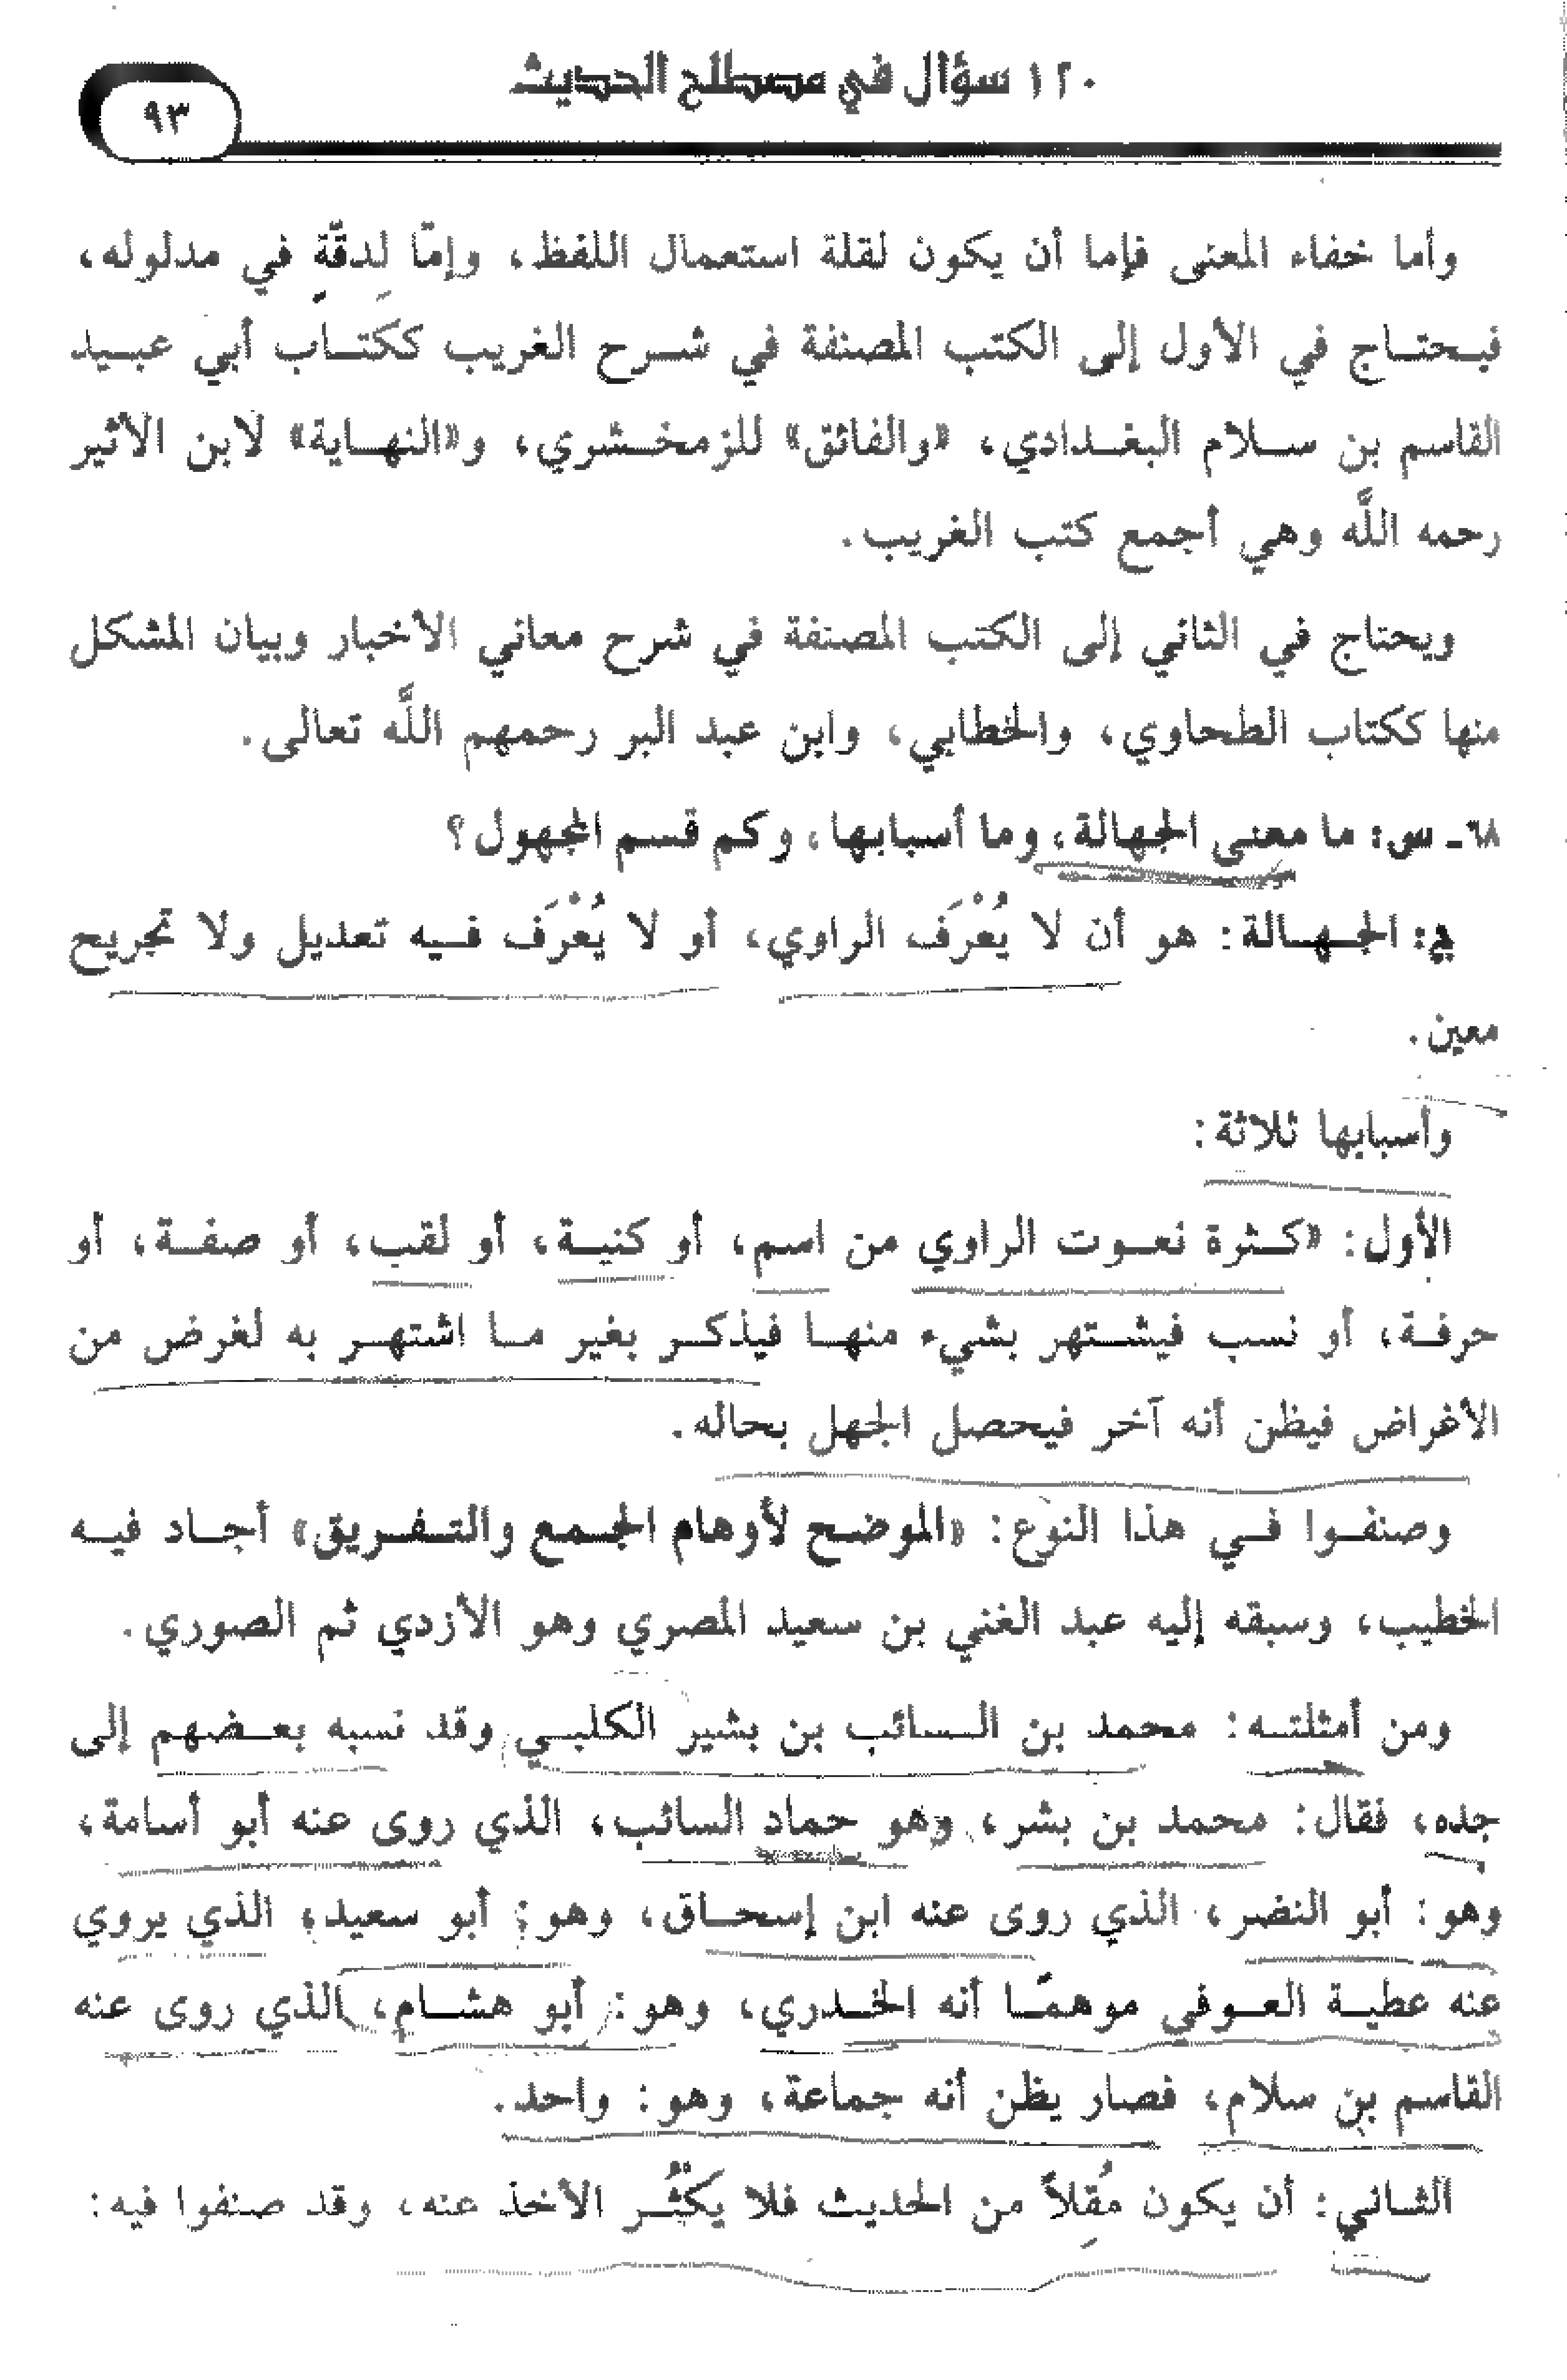 ١٢٠ سؤال في مصطلح الحديث
٩٣
وأما خفاء المعنى فإما أن يكون لقلة استعمال اللفظ، وإمّا لِدقّةٍ في مدلوله،
فيـحتـاج في الأول إلى الكتب المصنفة في شـرح الغريب ككتـاب أبي عبـيد
القاسم بن سـلام البغـدادي، «والفائق» للزمخـشري، و«النهـاية» لابن الأثير
رحمه اللَّه وهي أجمع كتب الغريب.
ويحتاج في الثاني إلى الكتب المصنفة في شرح معاني الأخبار وبيان المشكل
منها ككتاب الطحاوي، والخطابي، وابن عبد البر رحمهم اللَّه تعالى.
٦٨ـ س: ما معنى الجهالة، وما أسبابها، وكم قسم المجهول؟
ج: الجـهـالة: هو أن لا يُعْرَف الراوي، أو لا يُعْرَف فـيه تعديل ولا تجريح
معين.
وأسبابها ثلاثة:
الأول: «كـثرة نعـوت الراوي من اسم، أو كنيـة، أو لقب، أو صفـة، أو
حرفـة، أو نسب فيشـتهر بشيء منهـا فيذكـر بغير مـا اشتهـر به لغرض من
الأغراض فيظن أنه آخر فيحصل الجهل بحاله.
وصنفـوا فـي هذا النوع: «الموضـح لأوهام الجـمع والتـفـريق» أجـاد فيـه
الخطيب، وسبقه إليه عبد الغني بن سعيد المصري وهو الأزدي ثم الصوري.
ومن أمثلتـه: محمد بن الـسائب بن بشير الكلبـي وقد نسبه بعـضهم إلى
جده، فقال: محمد بن بشر، وهو حماد السائب، الذي روى عنه أبو أسامة،
وهو: أبو النضر، الذي روى عنه ابن إسحـاق، وهو: أبو سعيد، الذي يروي
عنه عطيـة العـوفي موهمًـا أنه الخـدري، وهو: أبو هشـام، الذي روى عنه
القاسم بن سلام، فصار يظن أنه جماعة، وهو: واحد.
الثـاني: أن يكون مُقِلاً من الحديث فلا يَكْثُـر الأخذ عنه، وقد صنفوا فيه: